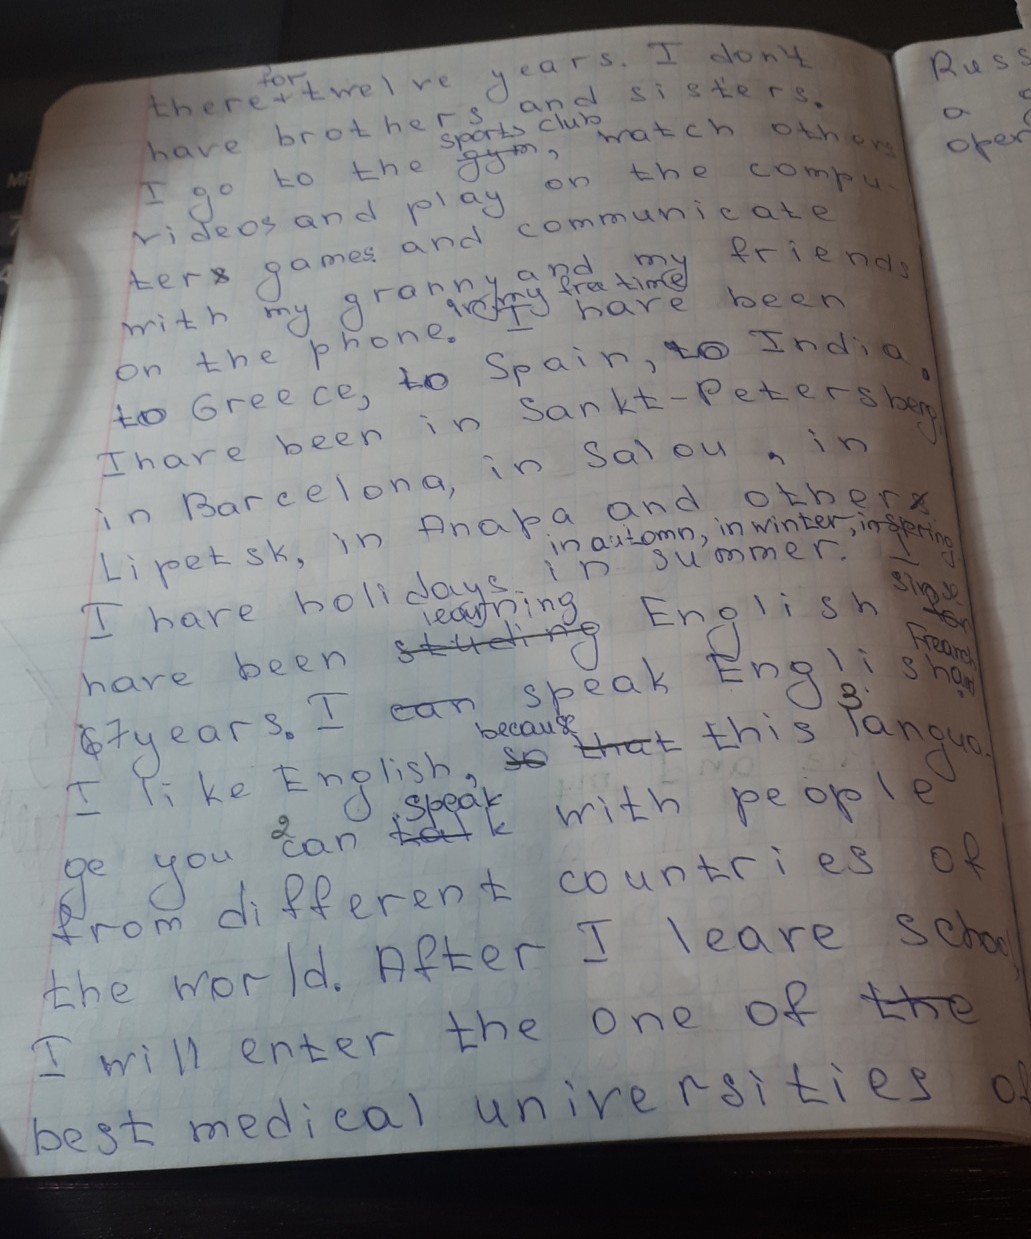 there for twelve years. I don't
have brothers and sisters.
I go to the sports club gym, watch others
videos and play on the compu-
ters games and communicate
with my granny and my friends
on the phone. in my free time I have been
to Greece, to Spain, to India.
I have been in Sankt-Petersberg,
in Barcelona, in Salou, in
Lipetsk, in Anapa and others
I have holidays in automn, in winter, in spring in summer. I
have been learning studing English
67years. I can speak English
I like English, so because that this 3 langua-
ge you 2 can speak talk with people
from different countries of
the world. After I leave school,
I will enter the one of the
best medical universities of
Russ
a
oper